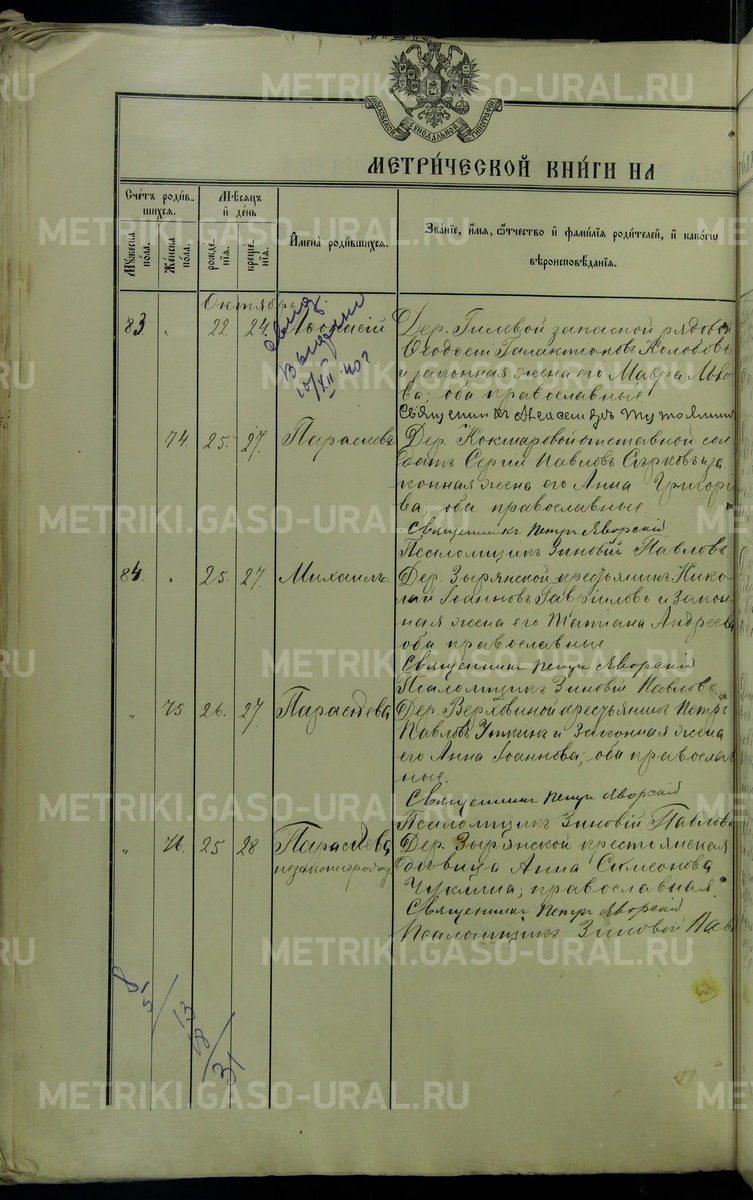 МОСКОВСКОЙ СѴНОДАЛЬНОЙ ТИПОГРАФІИ
МЕТРИ́ЧЕСКОЙ КНИ́ГИ НА
Сче́тъ роди́в-
шихся.
Му́жеска
по́ла.
Же́нска
по́ла.
М́ѣсяцъ
и҆ де́нь
рожде́-
нїѧ.
креще́-
нїѧ.
И҆мена̀ роди́вшихся.
Зва́нїе, и҆́мѧ, ѻ҆́тчество и҆ фами́лїѧ роди́телей, и҆ како́гѡ
вѣроисповѣ́данїѧ.
Октябрь
83 " 22. 24.
выдано
10/XII 40 г
Дер. Гилевой запасной рядовой
Ѳеодосій Галактіоновъ Колобовъ
и законная жена его Мавра
ва; оба православные
74. 25. 27.
Дер. Кокшаровой отставной сол
датъ Сергій Павловъ и за
конная жена его Анна Григорь
ва, оба православные.
Священникъ Петръ Яворскій
Псаломщикъ Зиновій Павловъ
84. " 25. 27. Михаилъ
Дер. Зырянской крестьянинъ Нико
лай Іоанновъ Гавриловъ и закон
ная жена его Татіана Андреева
оба православные
Священникъ Петръ Яворскій
Псаломщикъ Зиновій Павловъ
" 75 26. 27. Параскева
Дер. Верховиной крестьянинъ Петръ
Павловъ и законная жена
его Анна Іоаннова; оба православ
ные.
Священникъ Петръ Яворскій
Псаломщикъ Зиновій Павловъ
" 76. 25 28 Параскева
незаконнорожд
Дер. Зырянской крестьянская
дѣвица Анна Симеонова
Чуклина, православная.
Священникъ Петръ Яворскій
Псаломщикъ Зиновій Пав
8/5
13
18
31
METRIKI.GASO-URAL.RU